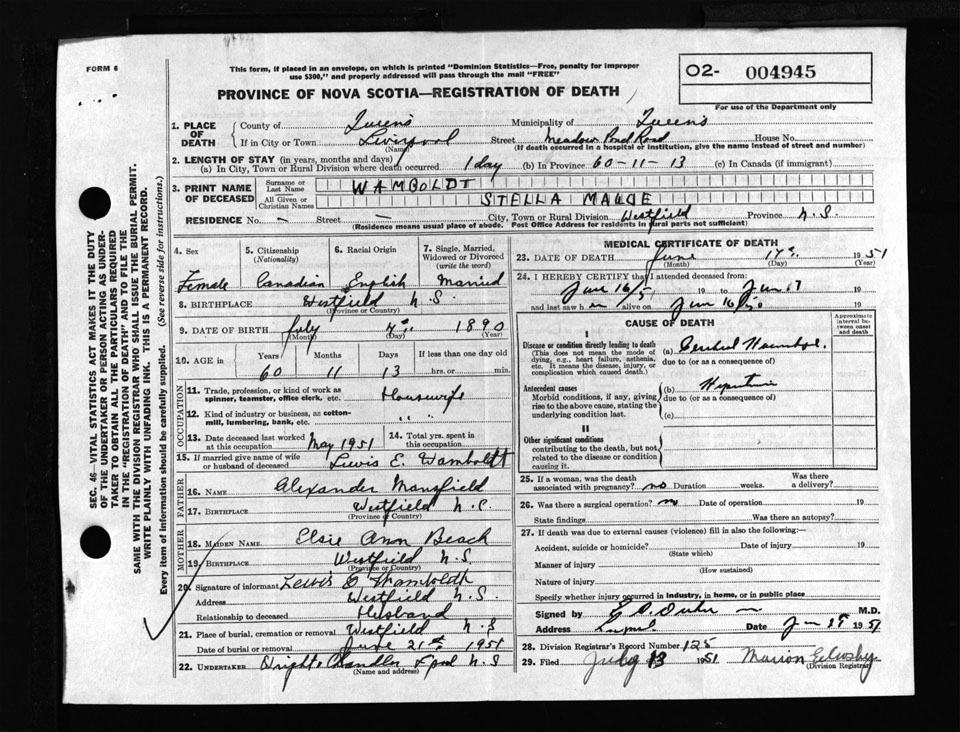 FORM 6
This form, if placed in an envelope, on which is printed "Dominion Statistics—Free, penalty for improper
use $300," and properly addressed will pass through the mail "FREE"
PROVINCE OF NOVA SCOTIA—REGISTRATION OF DEATH
O2- 004945
For use of the Department only
1. PLACE OF DEATH
County of Queens Municipality of Queens
If in City or Town Liverpool Street Meadow Pond Road House No.
(Name) (If death occurred in a hospital or institution, give the name instead of street and number)
2. LENGTH OF STAY (in years, months and days)
(a) In City, Town or Rural Division where death occurred 1 day (b) In Province 60-11-13 (c) In Canada (if immigrant)
3. PRINT NAME OF DECEASED
Surname or Last Name WAMBOLDT
All Given or Christian Names STELLA MAUDE
RESIDENCE No. – Street – City, Town or Rural Division Westfield Province N.S.
(Residence means usual place of abode. Post Office Address for residents in rural parts not sufficient)
4. Sex
Female
5. Citizenship
(Nationality)
Canadian
6. Racial Origin
English
7. Single, Married, Widowed or Divorced
(write the word)
Married
8. BIRTHPLACE Westfield N.S.
(Province or Country)
9. DATE OF BIRTH July 4th 1890
(Month) (Day) (Year)
10. AGE in Years Months Days If less than one day old
60 11 13 hrs. or min.
OCCUPATION
11. Trade, profession, or kind of work as
spinner, teamster, office clerk, etc. Housewife
12. Kind of industry or business, as cotton-
mill, lumbering, bank, etc. " "
13. Date deceased last worked
at this occupation May 1951
14. Total yrs. spent in
this occupation
15. If married give name of wife
or husband of deceased Lewis E. Wamboldt
FATHER
16. NAME Alexander Mansfield
17. BIRTHPLACE Westfield N.S.
(Province or Country)
MOTHER
18. MAIDEN NAME Elsie Ann Beach
19. BIRTHPLACE Westfield N.S.
(Province or Country)
20. Signature of informant Lewis E Wamboldt
Address Westfield N.S.
Relationship to deceased Husband
21. Place of burial, cremation or removal Westfield N.S
Date of burial or removal June 21st 1951
22. UNDERTAKER Chandler L'pool N.S
(Name and address)
MEDICAL CERTIFICATE OF DEATH
23. DATE OF DEATH June 17th 1951
(Month) (Day) (Year)
24. I HEREBY CERTIFY that I attended deceased from:
Jun 16/51 19 to Jun 17 19
and last saw h er alive on Jun 16 19
CAUSE OF DEATH
Approximate interval between onset and death
I
Disease or condition directly leading to death
(This does not mean the mode of
dying, e.g., heart failure, asthenia,
etc. It means the disease, injury, or
complication which caused death.)
(a)
due to (or as a consequence of)
Antecedent causes
Morbid conditions, if any, giving
rise to the above cause, stating the
underlying condition last.
(b)
due to (or as a consequence of)
(c)
II
Other significant conditions
contributing to the death, but not
related to the disease or condition
causing it.
25. If a woman, was the death
associated with pregnancy? no Duration weeks. Was there a delivery?
26. Was there a surgical operation? no Date of operation 19
State findings Was there an autopsy?
27. If death was due to external causes (violence) fill in also the following:—
Accident, suicide or homicide? Date of injury 19
(State which)
Manner of injury
(How sustained)
Nature of injury
Specify whether injury occurred in industry, in home, or in public place
Signed by M.D.
Address Date 1951
28. Division Registrar's Record Number 125
29. Filed July 13 1951 Marion
(Division Registrar)
SEC. 46—VITAL STATISTICS ACT MAKES IT THE DUTY
OF THE UNDERTAKER OR PERSON ACTING AS UNDER-
TAKER TO OBTAIN ALL THE PARTICULARS REQUIRED
IN THE "REGISTRATION OF DEATH" AND TO FILE THE
SAME WITH THE DIVISION REGISTRAR WHO SHALL ISSUE THE BURIAL PERMIT.
WRITE PLAINLY WITH UNFADING INK. THIS IS A PERMANENT RECORD.
Every item of information should be carefully supplied. (See reverse side for instructions.)